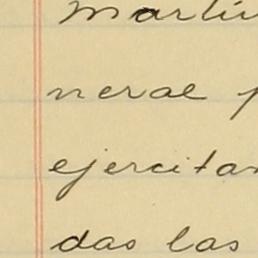 Martín
neral p
ejercitan
das las